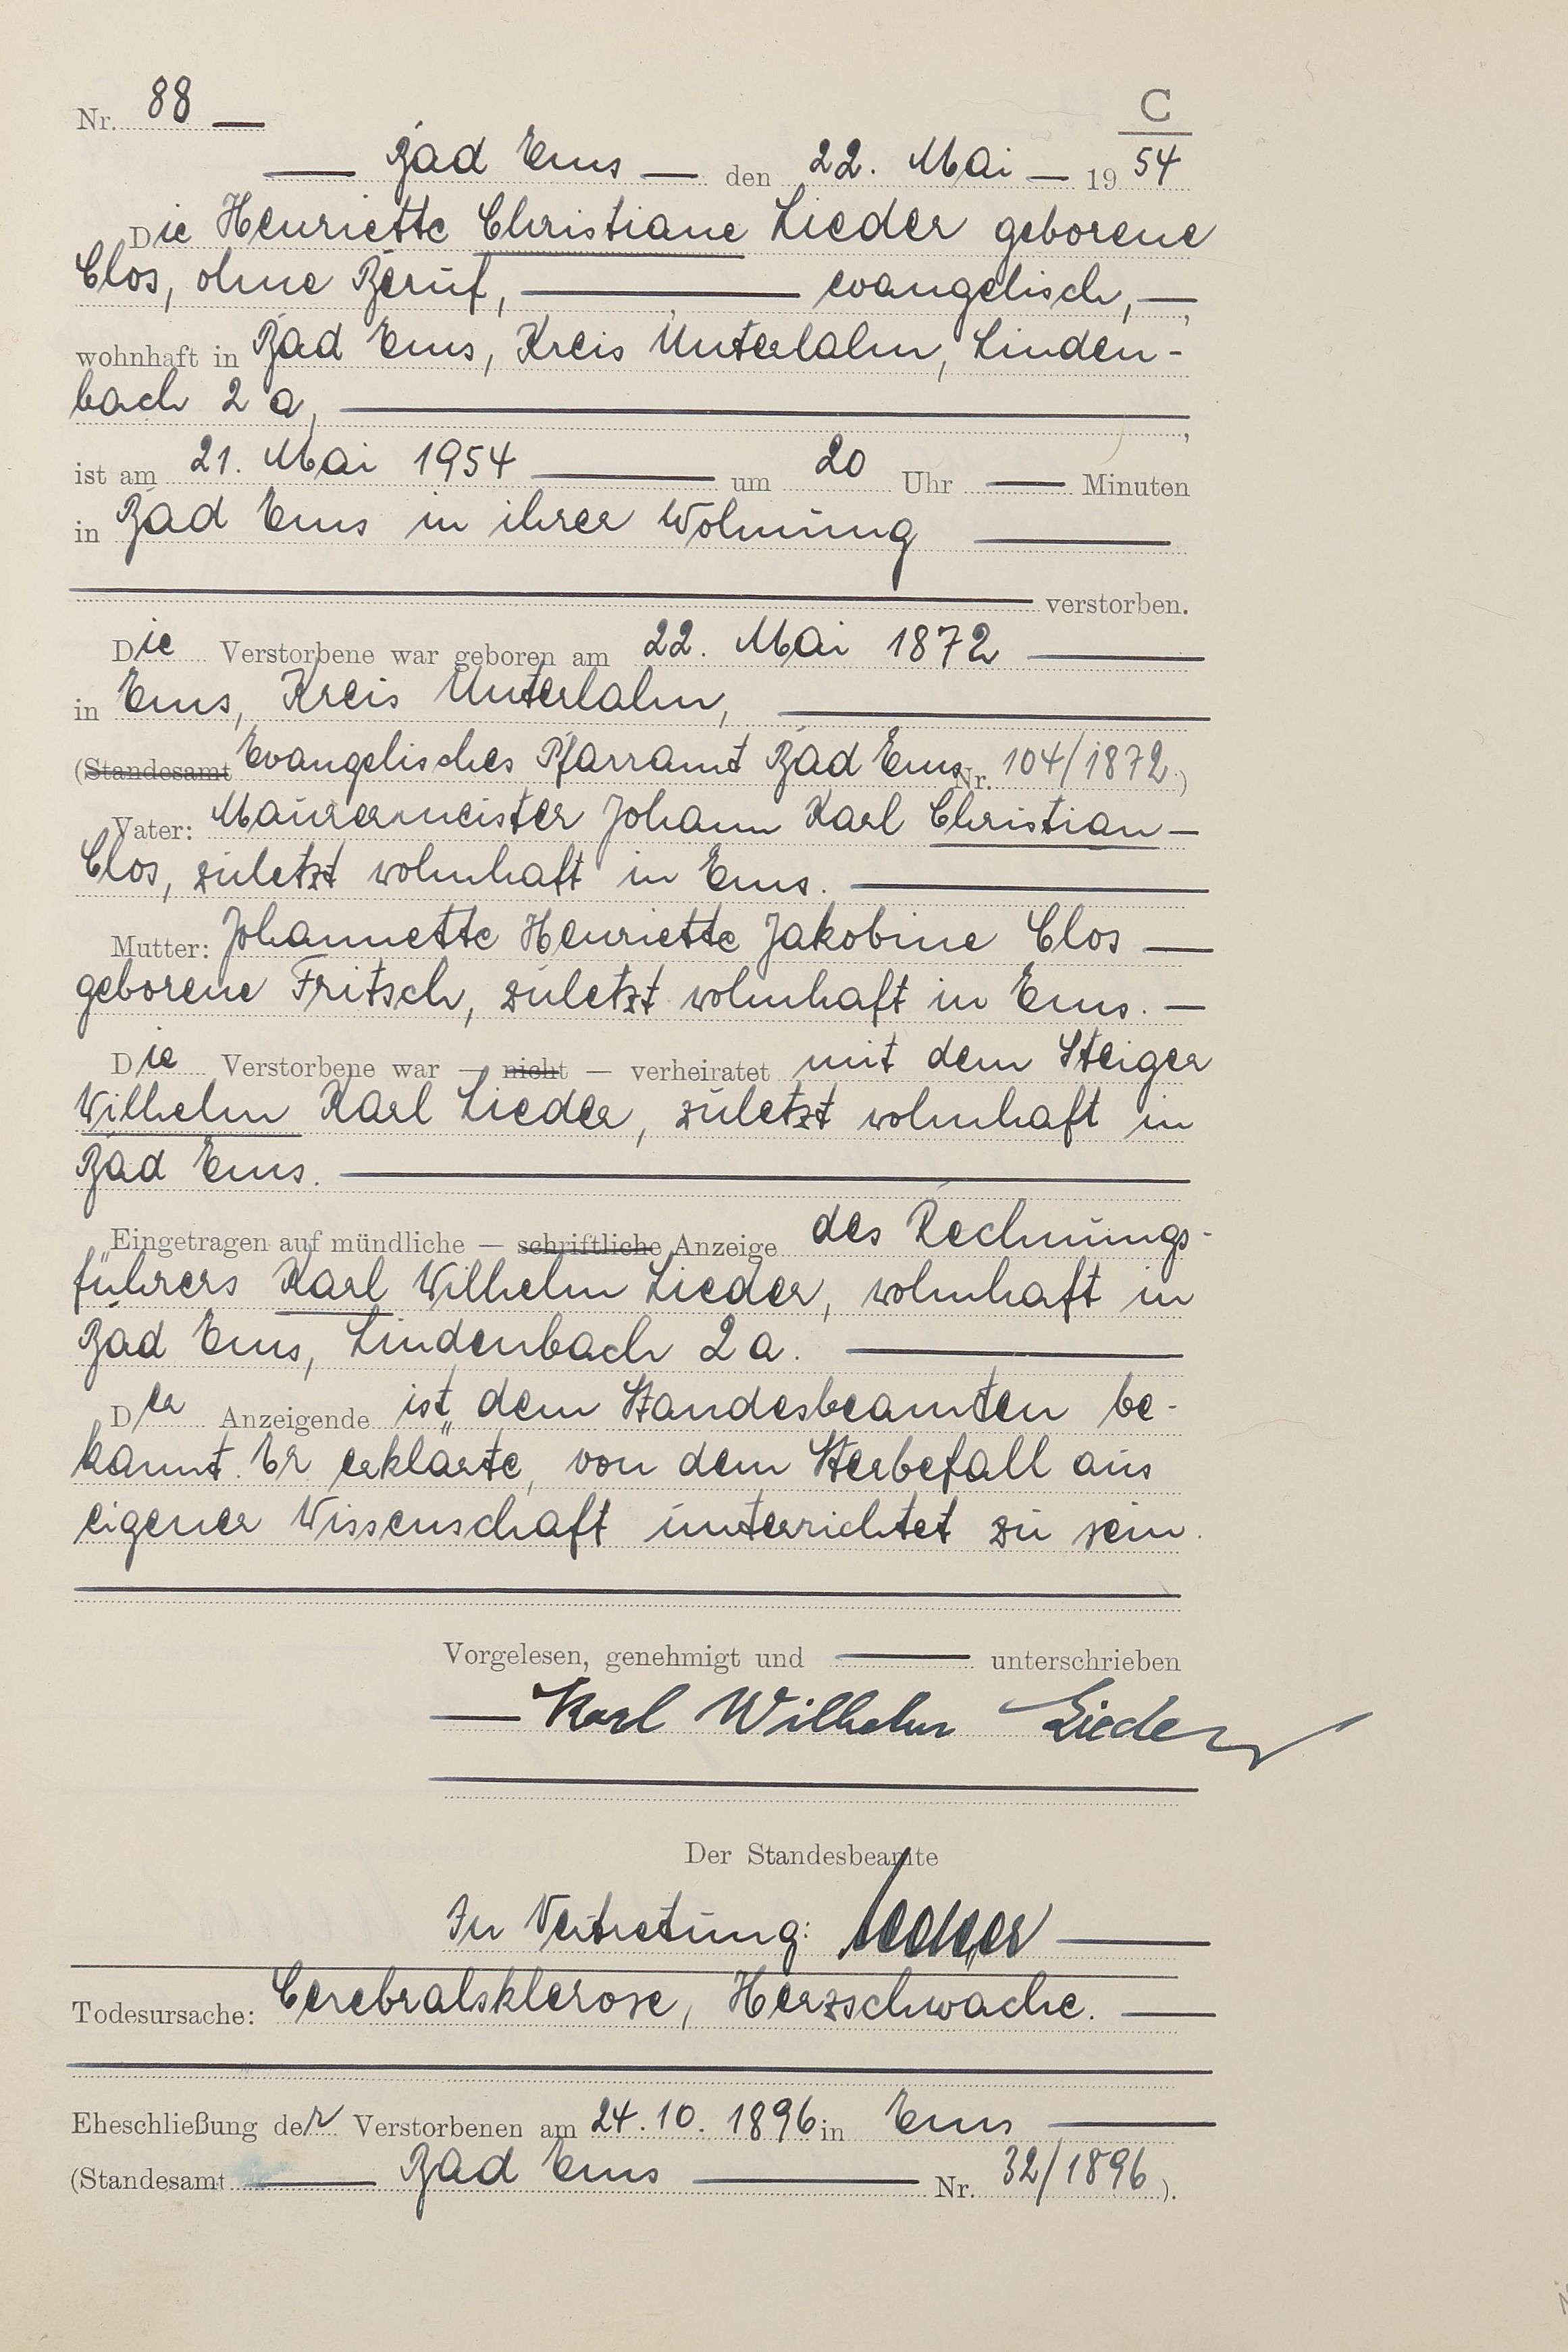 Nr. 88 —
C
— Bad Ems — den 22. Mai — 1954
Die Henriette Christiane Lieder geborene
Clos, ohne Beruf, — evangelisch, —,
wohnhaft in Bad Ems, Kreis Unterlahn, Linden-
bach 2 a, —,
ist am 21. Mai 1954 — um 20 Uhr — Minuten
in Bad Ems in ihrer Wohnung —
— verstorben.
Die Verstorbene war geboren am 22. Mai 1872 —
in Ems, Kreis Unterlahn, —
(Standesamt Evangelisches Pfarramt Bad Ems Nr. 104/1872)
Vater: Maurermeister Johann Karl Christian —
Clos, zuletzt wohnhaft in Ems. —
Mutter: Johannette Henriette Jakobine Clos —
geborene Fritsch, zuletzt wohnhaft in Ems. —
Die Verstorbene war — nicht — verheiratet mit dem Steiger
Wilhelm Karl Lieder, zuletzt wohnhaft in
Bad Ems. —
Eingetragen auf mündliche — schriftliche Anzeige des Rechnungs-
führers Karl Wilhelm Lieder, wohnhaft in
Bad Ems, Lindenbach 2 a. —
Der Anzeigende ist dem Standesbeamten be-
kannt. Er erklärte, von dem Sterbefall aus
eigener Wissenschaft unterrichtet zu sein.
Vorgelesen, genehmigt und — unterschrieben
— Karl Wilhelm Lieder
Der Standesbeamte
In Vertretung: —
Todesursache: Cerebralsklerose, Herzschwäche. —
Eheschließung der Verstorbenen am 24.10.1896 in Ems —
(Standesamt — Bad Ems — Nr. 32/1896).